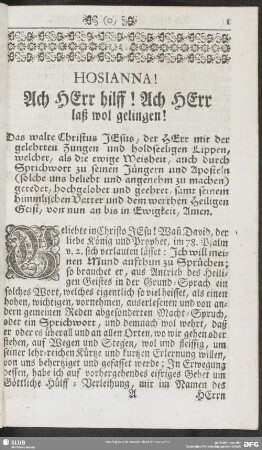 (o)
1
HOSIANNA!
Ach HErr hilff! Ach HErr
laß wol gelingen!
Das walte Christus JEsus, der HErr mit der
gelehrten Zungen und holdseeligen Lippen,
welcher, als die ewige Weisheit, auch durch
Sprichwort zu seinen Jüngern und Aposteln
(solche uns beliebt und angenehm zu machen)
geredet, hochgelobet und geehret, samt seinem
himmlischen Vatter und dem werthen Heiligen
Geist, von nun an bis in Ewigkeit, Amen.
Geliebte in Christo JEsu! Wañ David, der
liebe König und Prophet, im 78. Psalm
v. 2. sich verlauten lässet: Ich will mei-
nen Mund aufthun zu Sprüchen;
so brauchet er, aus Antrieb des Heili-
gen Geistes in der Grund-Sprach ein
solches Wort, welches eigentlich so viel heisset, als einen
hohen, wichtigen, vornehmen, auserlesenen und von an-
dern gemeinen Reden abgesonderten Macht-Spruch,
oder ein Sprichwort, und demnach wol wehrt, daß
er oder es überall und an allen Orten, wo wir gehen oder
stehen, auf Wegen und Stegen, wol und fleissig, um
seiner lehr-reichen Kürtze und kurtzen Erlernung willen,
von uns behertziget und gefasset werde; In Erwegung
dessen, habe ich auf vorhergehendes eifriges Gebet um
Göttliche Hülff-Verleihung, mir im Namen des
A
HErrn
SLUB
DFG